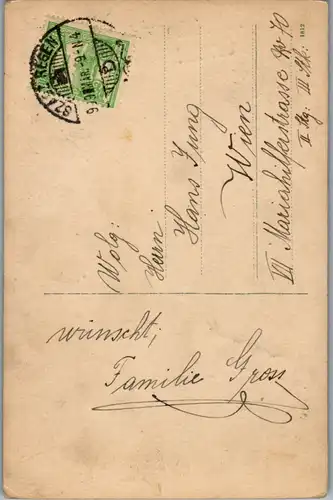 1812
SZÁSZRÉGEN
Wolg:
Herrn
Hans Jung
Wien
VII Mariahilferstrasse No 70
II Stg. III Stk.
wünscht,
Familie Gross